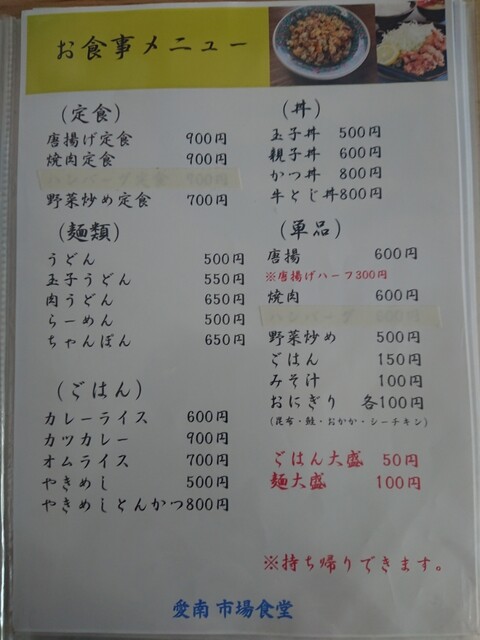 お食事メニュー
(定食)
唐揚げ定食 900円
焼肉定食 900円
ハンバーグ定食 900円
野菜炒め定食 700円
(麺類)
うどん 500円
玉子うどん 550円
肉うどん 650円
らーめん 500円
ちゃんぽん 650円
(ごはん)
カレーライス 600円
カツカレー 900円
オムライス 700円
やきめし 500円
やきめしとんかつ800円
(丼)
玉子丼 500円
親子丼 600円
かつ丼 800円
牛とじ丼800円
(単品)
唐揚 600円
※唐揚げハーフ300円
焼肉 600円
野菜炒め 500円
ごはん 150円
みそ汁 100円
おにぎり 各100円
(昆布・鮭・おかか・シーチキン)
ごはん大盛 50円
麺大盛 100円
※持ち帰りできます。
愛南市場食堂